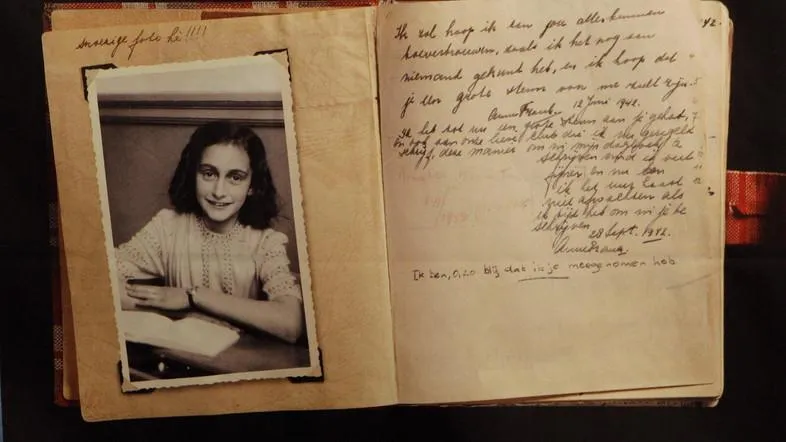 snoezige foto hè!!!!
Ik zal hoop ik aan jou alles kunnen
toevertrouwen, zoals ik het nog aan
niemand gekund heb, en ik hoop dat
je een grote steun voor me zult zijn.
Anne Frank. 12 Juni 1942.
Ik heb tot nu een grote steun aan je gehad,
en ook aan onze lieve club die ik nu geregeld
schrijf, deze manier om in mijn dagboek te
schrijven vind ik veel
fijner en nu kan
ik het uur haast
niet afwachten als
ik tijd heb om in je te
schrijven.
28 Sept. 1942.
Anne Frank.
Ik ben, o, zo blij dat ik je meegenomen heb